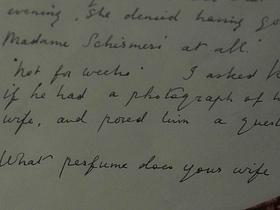 evening, she denied having go
Madame Schismesi at all.
'Not for weeks' I asked
if he had a photograph of
wife, and posed him a quest
What perfume does your wife